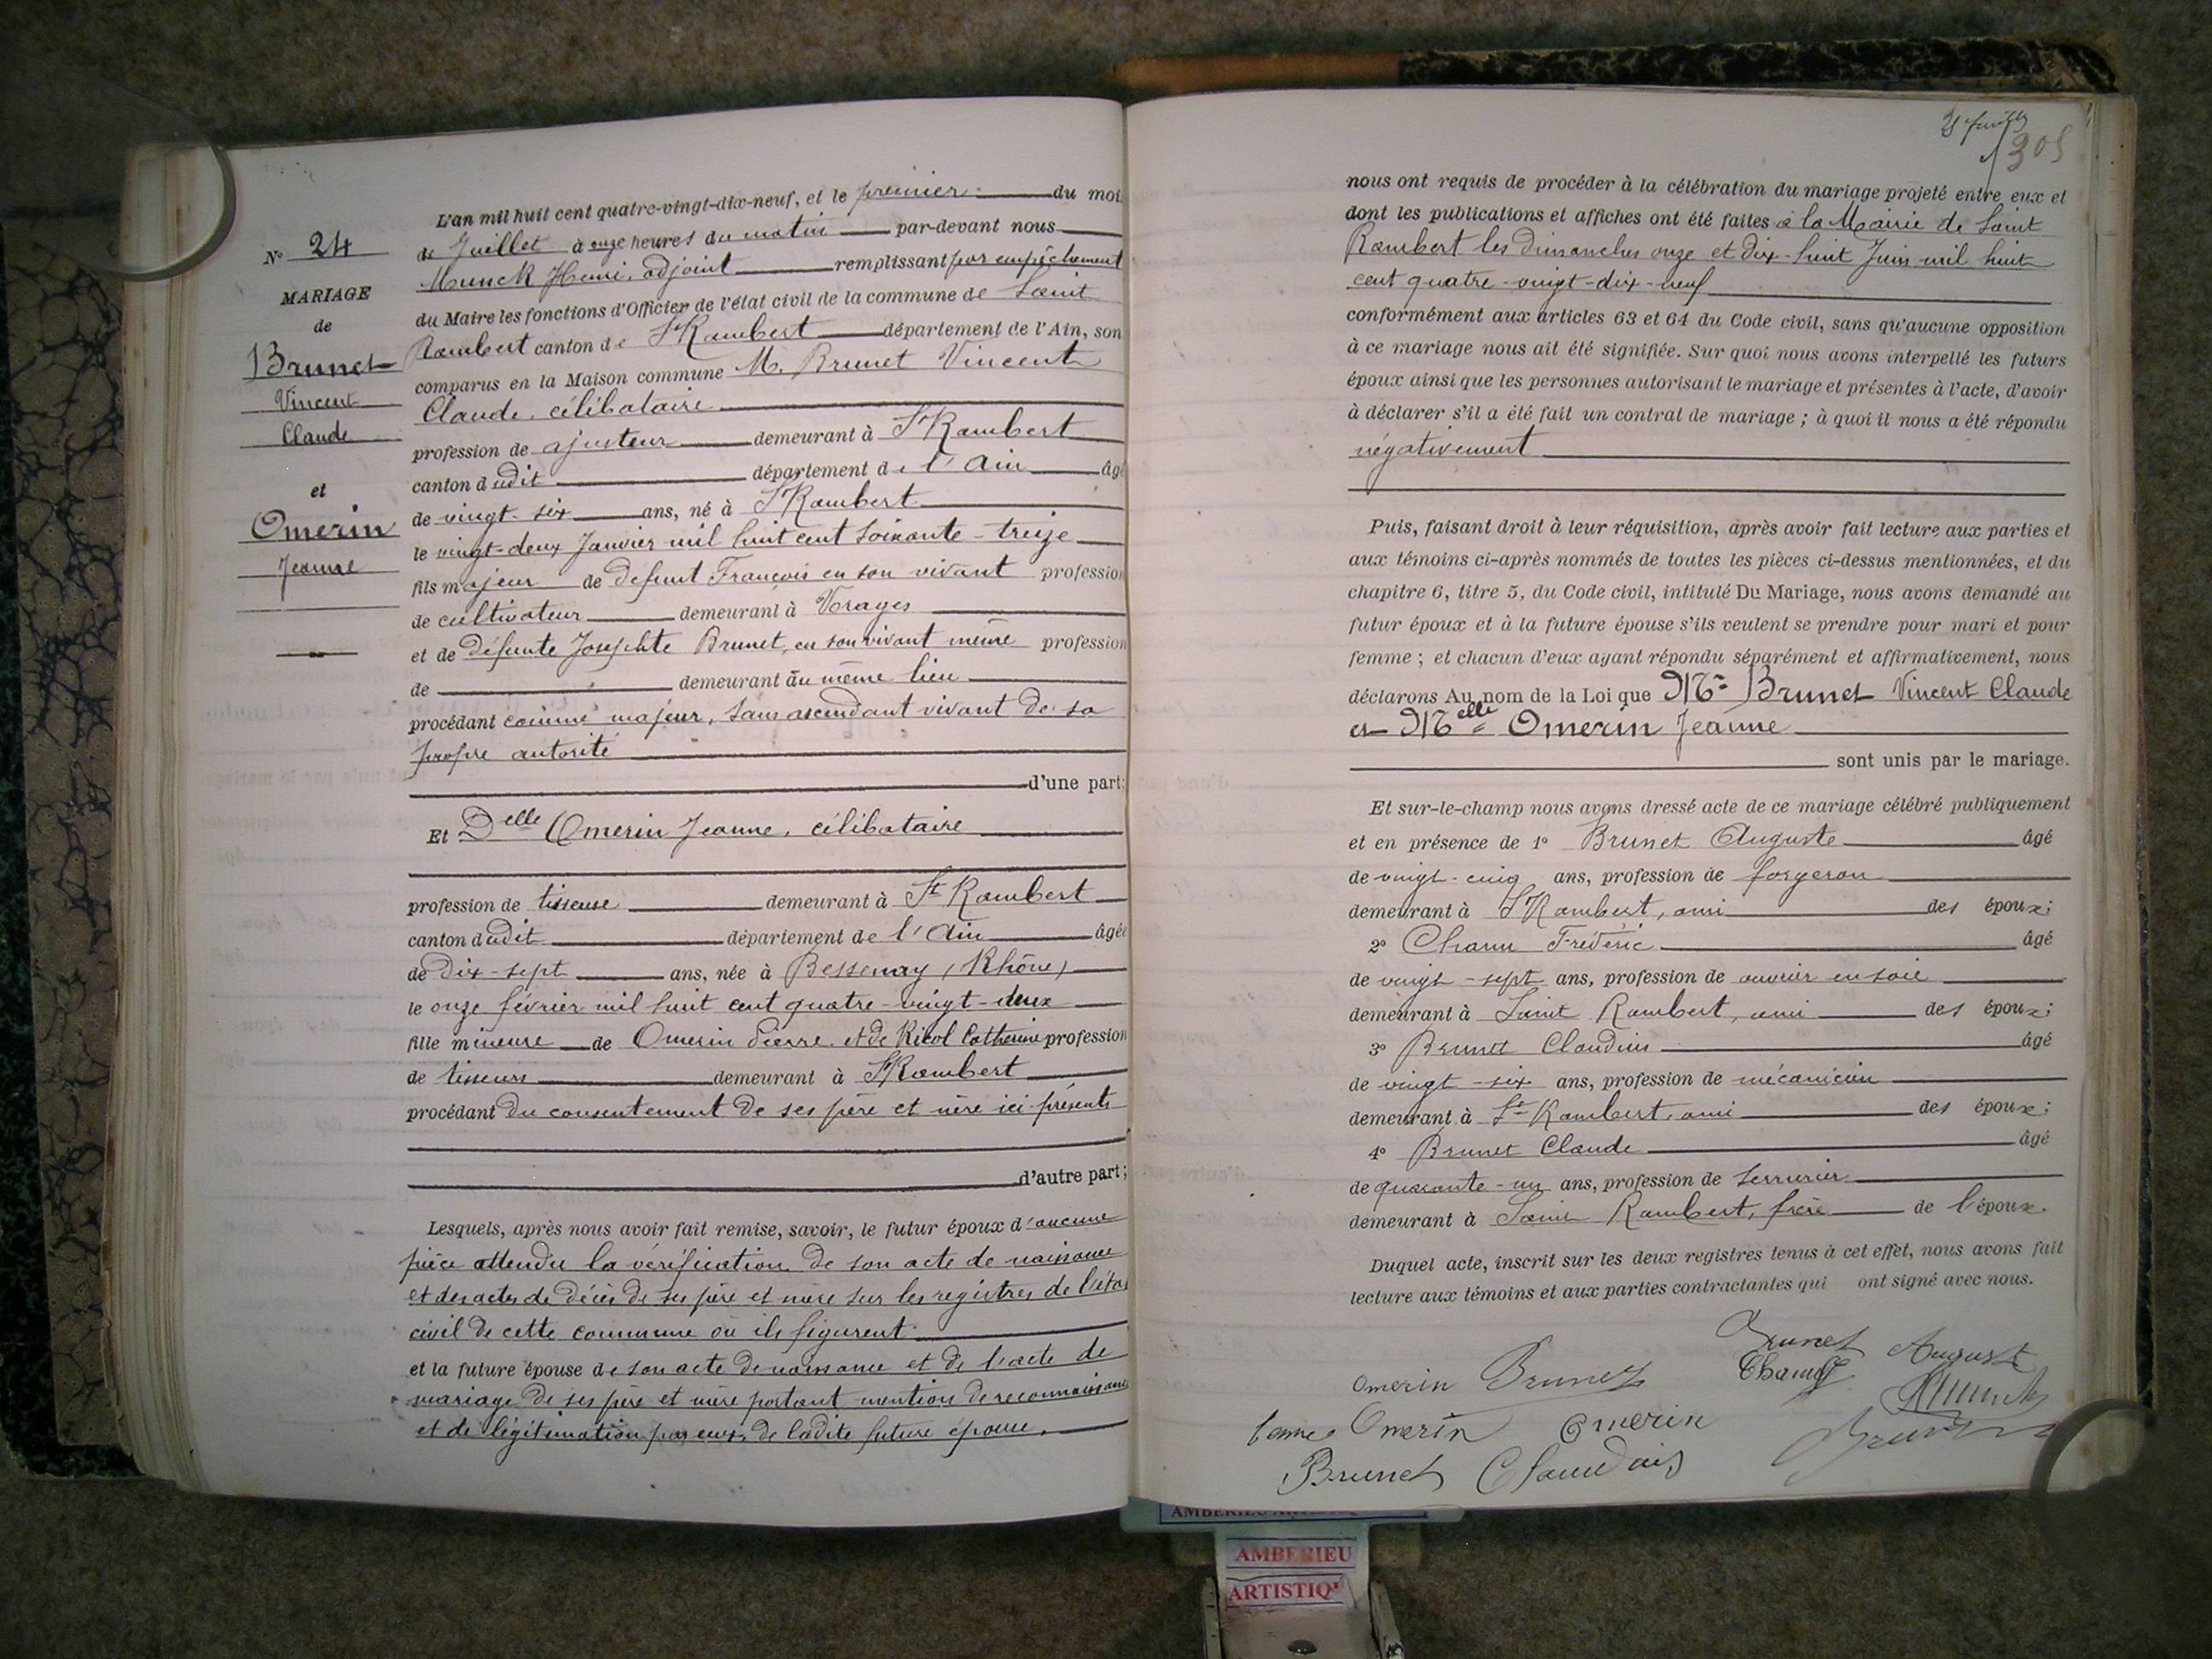 L'an mil huit cent quatre-vingt-dix-neuf, et le premier du mois
de Juillet à onze heures du matin par-devant nous
Munck Henri, adjoint remplissant par empêchement
du Maire les fonctions d'Officier de l'état civil de la commune de Saint
Rambert canton de St Rambert département de l'Ain, son
comparus en la Maison commune M. Brunet Vincent
Claude, célibataire
profession de ajusteur demeurant à St Rambert
canton dudit département de l'Ain âgé
de vingt-six ans, né à St Rambert
le vingt-deux Janvier mil huit cent soixante-treize
fils majeur de défunt François en son vivant profession
de cultivateur demeurant à Vorages
et de défunte Josephte Brunet, en son vivant même profession
de demeurant au même lieu
procédant comme majeur, sans ascendant vivant de sa
propre autorité
d'une part;
Et Delle Omerin Jeanne, célibataire
profession de tisseuse demeurant à St Rambert
canton dudit département de l'Ain âgée
de Dix-sept ans, née à Bessenay (Rhône)
le onze février mil huit cent quatre-vingt-deux
fille mineure de Omerin Pierre et de Rivol Catherine profession
de tisseurs demeurant à St Rambert
procédant du consentement de ses père et mère ici présents
d'autre part;
Lesquels, après nous avoir fait remise, savoir, le futur époux d'aucune
pièce attendu la vérification de son acte de naissance
et des actes de décès de ses père et mère sur les registres de l'état
civil de cette commune où ils figurent
et la future épouse de son acte de naissance et de l'acte de
mariage de ses père et mère portant mention de reconnaissance
et de légitimation par eux, de ladite future épouse.
No 24
MARIAGE
de
Brunet
Vincent
Claude
et
Omerin
Jeanne
305
nous ont requis de procéder à la célébration du mariage projeté entre eux et
dont les publications et affiches ont été faites à la Mairie de Saint
Rambert les dimanches onze et dix-huit Juin mil huit
cent quatre-vingt-dix-neuf
conformément aux articles 63 et 64 du Code civil, sans qu'aucune opposition
à ce mariage nous ait été signifiée. Sur quoi nous avons interpellé les futurs
époux ainsi que les personnes autorisant le mariage et présentes à l'acte, d'avoir
à déclarer s'il a été fait un contrat de mariage; à quoi il nous a été répondu
négativement
Puis, faisant droit à leur réquisition, après avoir fait lecture aux parties et
aux témoins ci-après nommés de toutes les pièces ci-dessus mentionnées, et du
chapitre 6, titre 5, du Code civil, intitulé Du Mariage, nous avons demandé au
futur époux et à la future épouse s'ils veulent se prendre pour mari et pour
femme; et chacun d'eux ayant répondu séparément et affirmativement, nous
déclarons Au nom de la Loi que Mr Brunet Vincent Claude
et Melle Omerin Jeanne
sont unis par le mariage.
Et sur-le-champ nous avons dressé acte de ce mariage célébré publiquement
et en présence de 1o Brunet Auguste âgé
de vingt-cinq ans, profession de forgeron
demeurant à St Rambert, ami des époux;
2o Chanu Frédéric âgé
de vingt-sept ans, profession de ouvrier en soie
demeurant à Saint Rambert, ami des époux;
3o Brunet Claudius âgé
de vingt-six ans, profession de mécanicien
demeurant à St Rambert, ami des époux;
4o Brunet Claude âgé
de quarante-un ans, profession de serrurier
demeurant à Saint Rambert, frère de l'époux.
Duquel acte, inscrit sur les deux registres tenus à cet effet, nous avons fait
lecture aux témoins et aux parties contractantes qui ont signé avec nous.
Brunet August
Omerin Brunet
Omerin Omerin
Brunet
AMBERIEU
ARTISTIQ